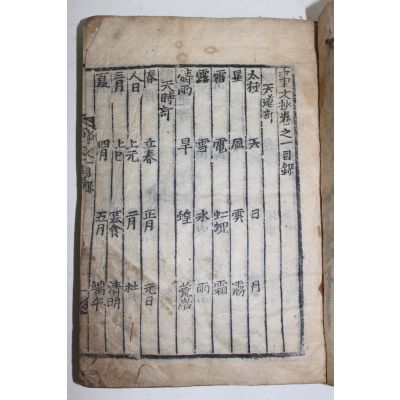 事文抄卷之一目錄
天道部
太極 天 日 月
星 風 雲 霧
雷 電 虹蜺 霜
露 雪 氷 雨
禱雨 旱 蝗 荒歲
天時部
春 立春 正月 元日
人日 上元 二月 社
三月 上巳 寒食 清明
夏 四月 五月 端午